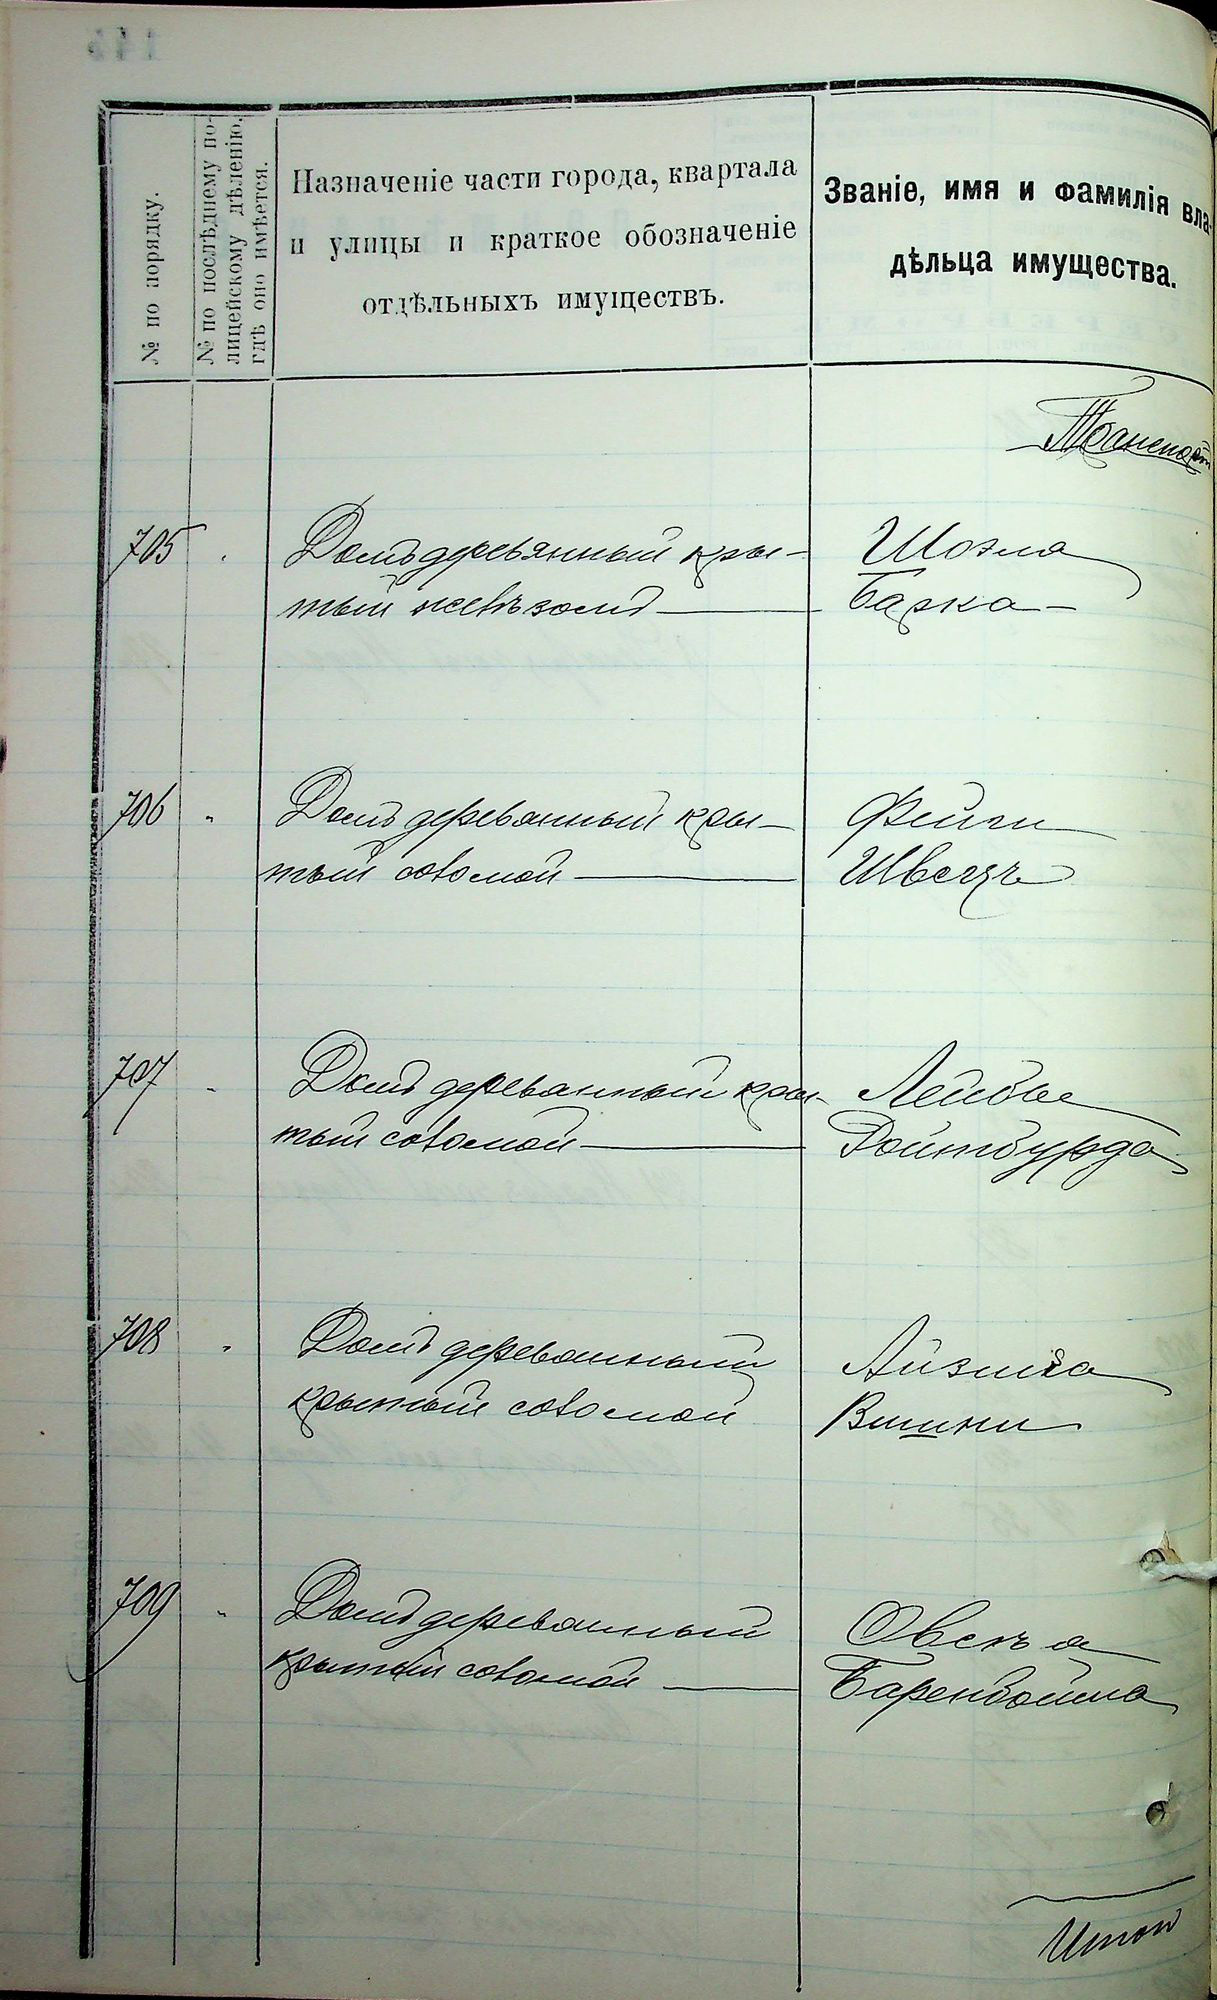 № по порядку.
№ по послѣднему по-
лицейскому дѣленію,
гдѣ оно имѣется.
Назначеніе части города, квартала
и улицы и краткое обозначеніе
отдѣльныхъ имуществъ.
Званіе, имя и фамилія вла-
дѣльца имущества.
Транспорт
705
Домъ деревянный кры-
тый желѣзомъ
Шозма
Барка
706 "
Домъ деревянный кры-
тый соломой
Фейги
Швецъ
707 "
Домъ деревянный кры-
тый соломой
Лейбы
Ройтбурда
708 "
Домъ деревянный
крытый соломой
Айзика
709 "
Домъ деревянный
крытый соломой
Овсѣя
Баренбойма
Итого